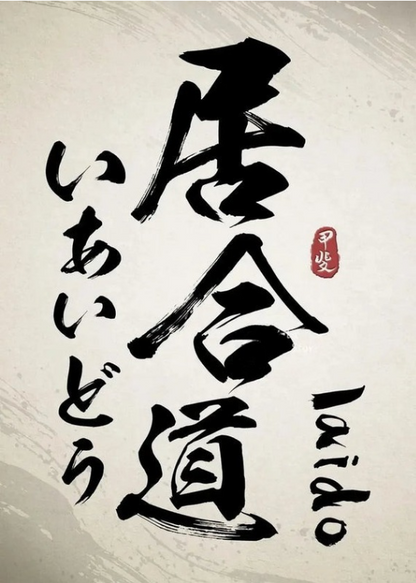 居合道
いあいどう
甲斐
Iaido